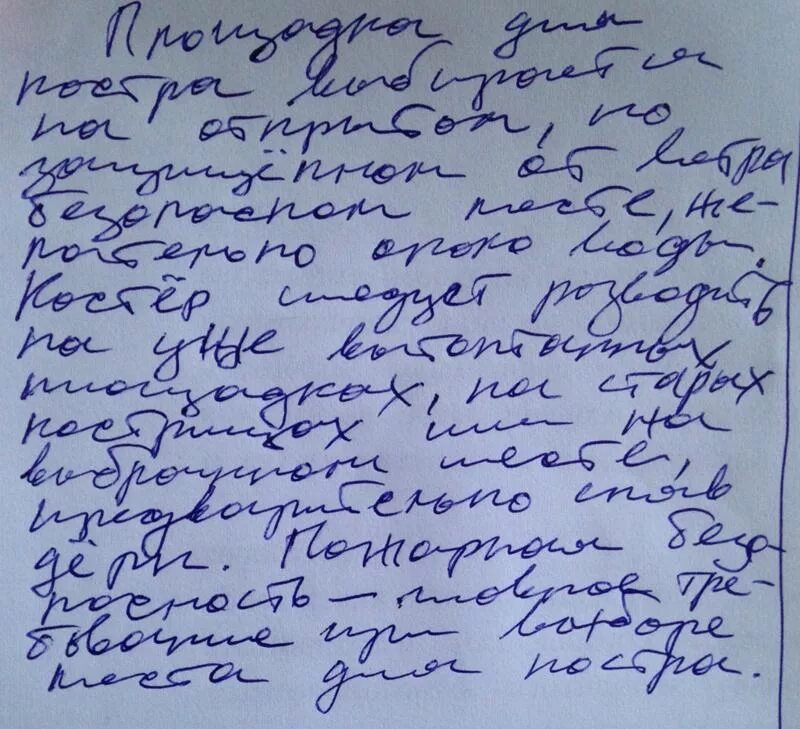 Площадка для
костра выбирается
на открытом, но
защищённом от ветра
безопасном месте, же-
лательно около воды.
Костёр следует разводить
на уже вытоптанных
площадках, на старых
кострищах или на
выбранном месте,
предварительно сняв
дёрн. Пожарная безо-
пасность — главное тре-
бование при выборе
места для костра.